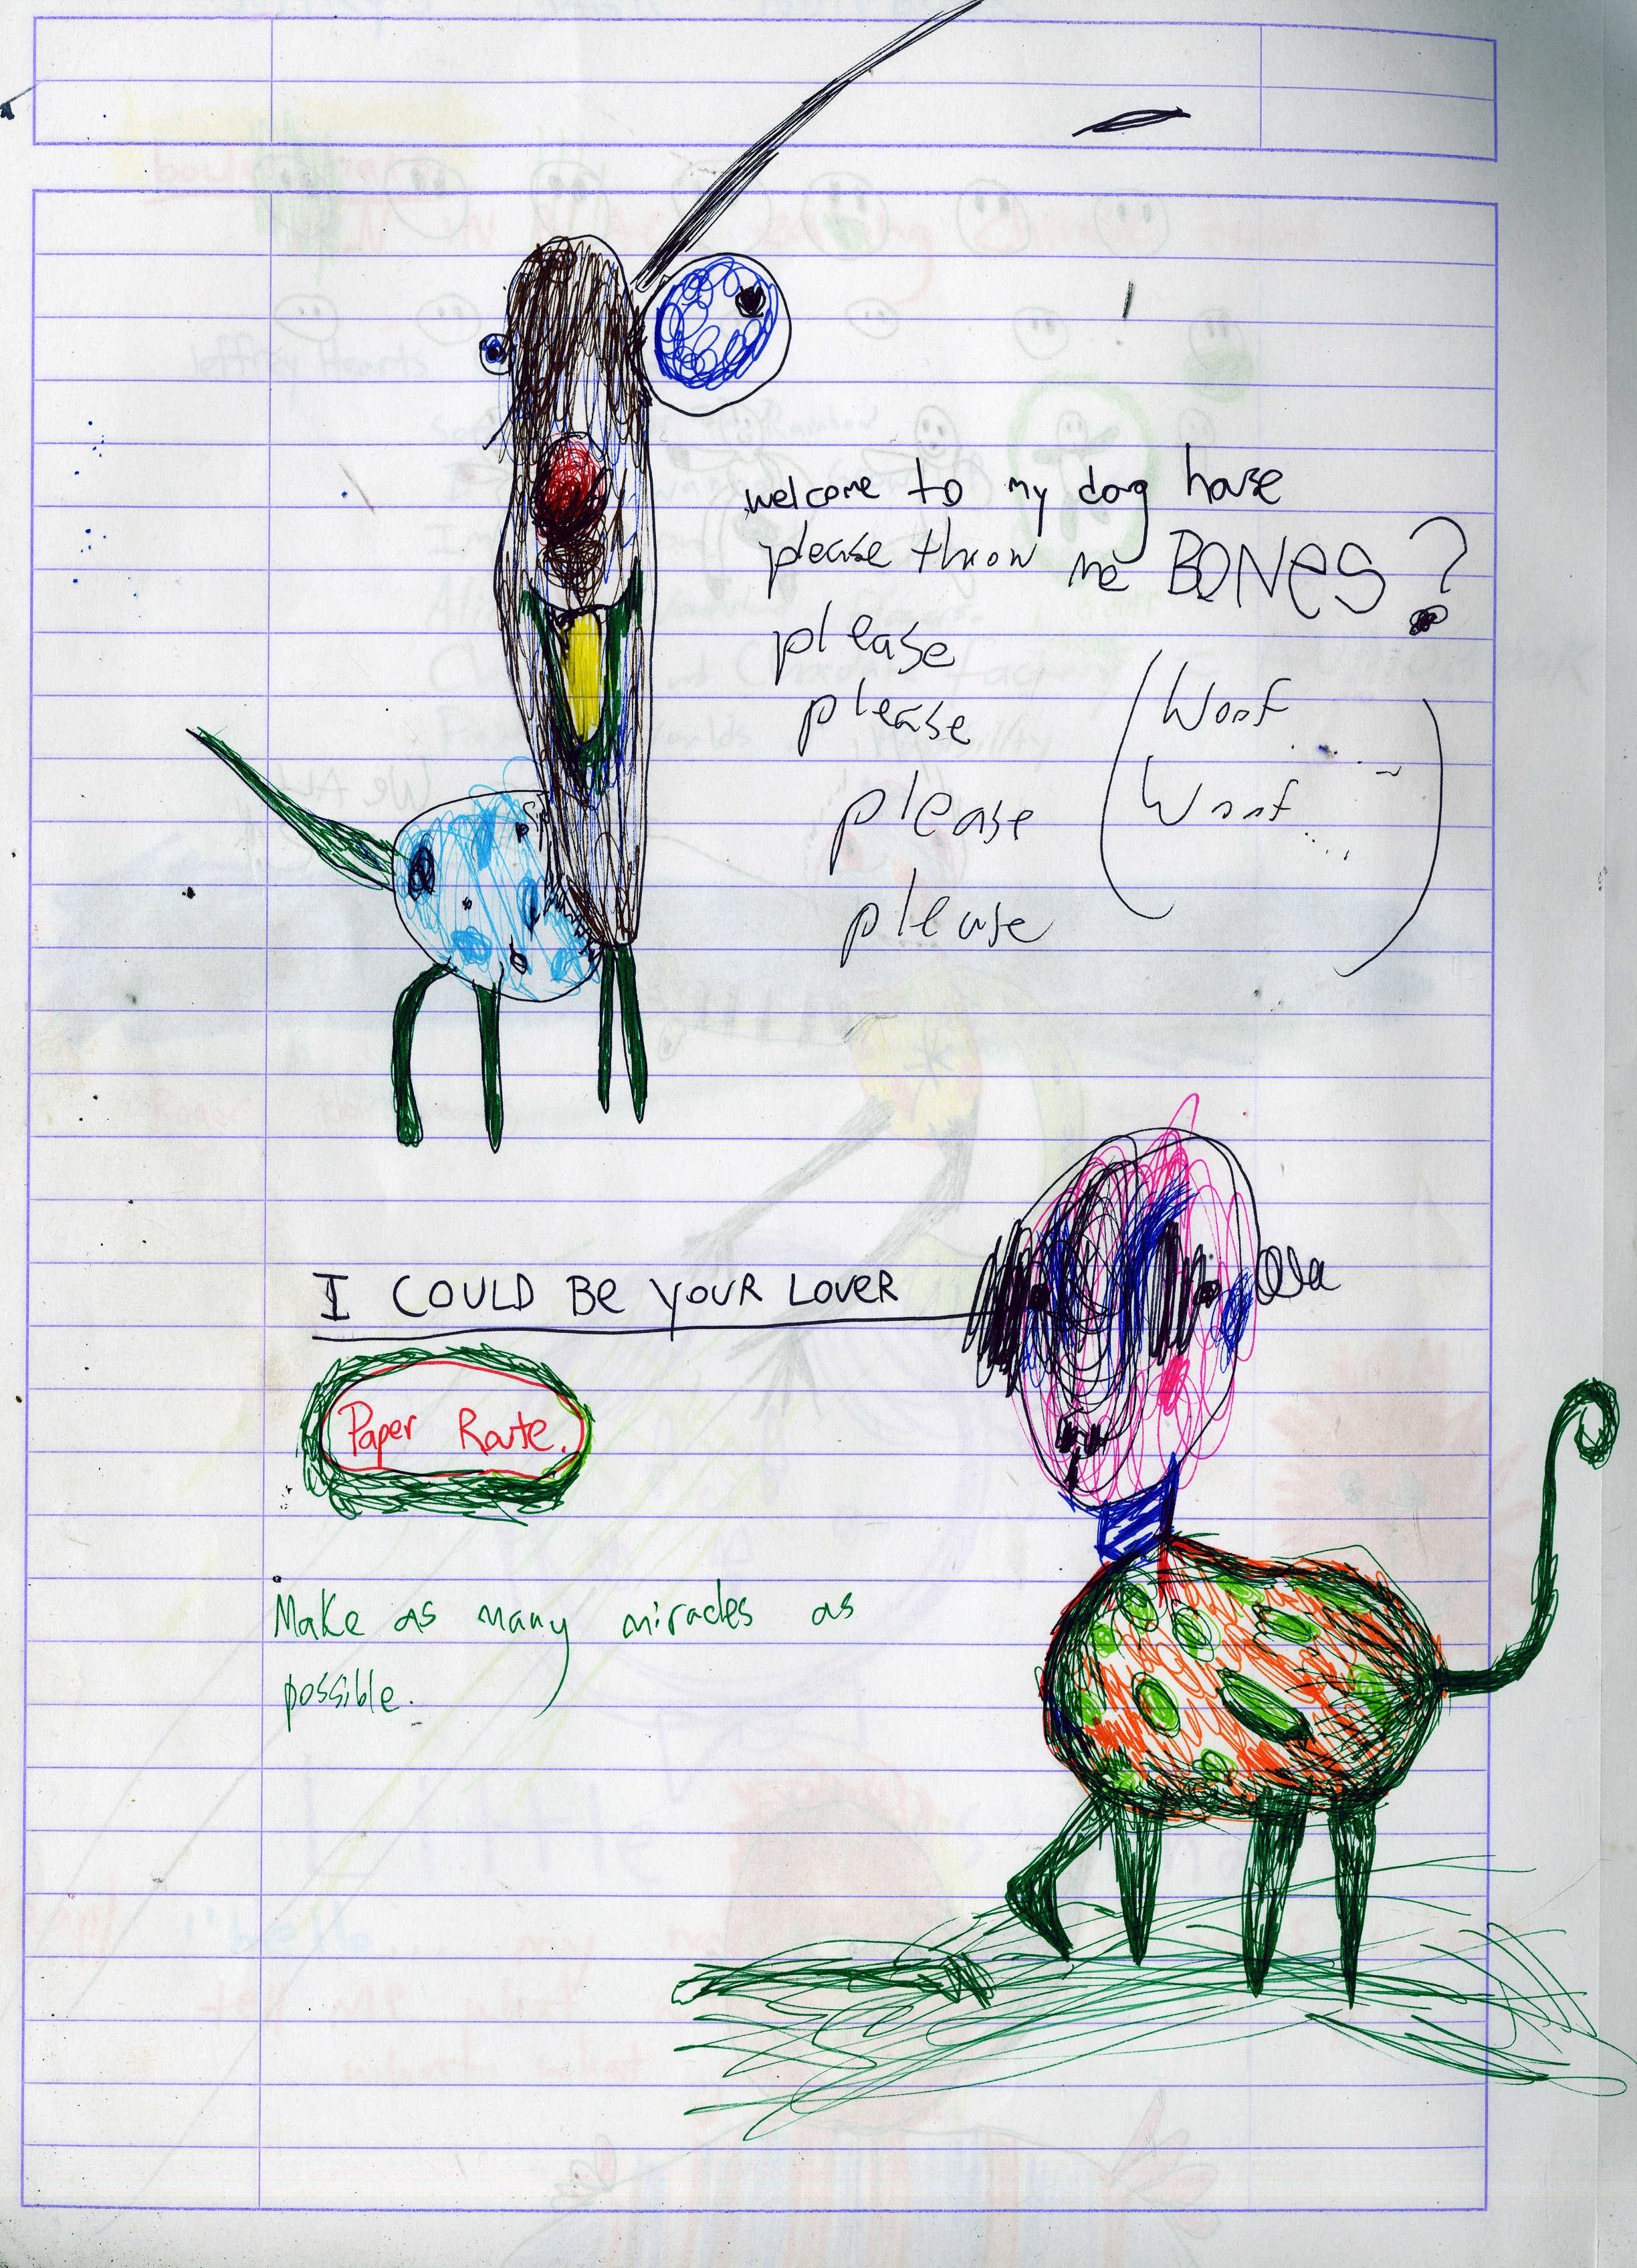 welcome to my dog house
please throw me BONES?
please
please
please
please
(Woof
Woof)
I COULD BE YOUR LOVER
Paper Route.
Make as many miracles as
possible.